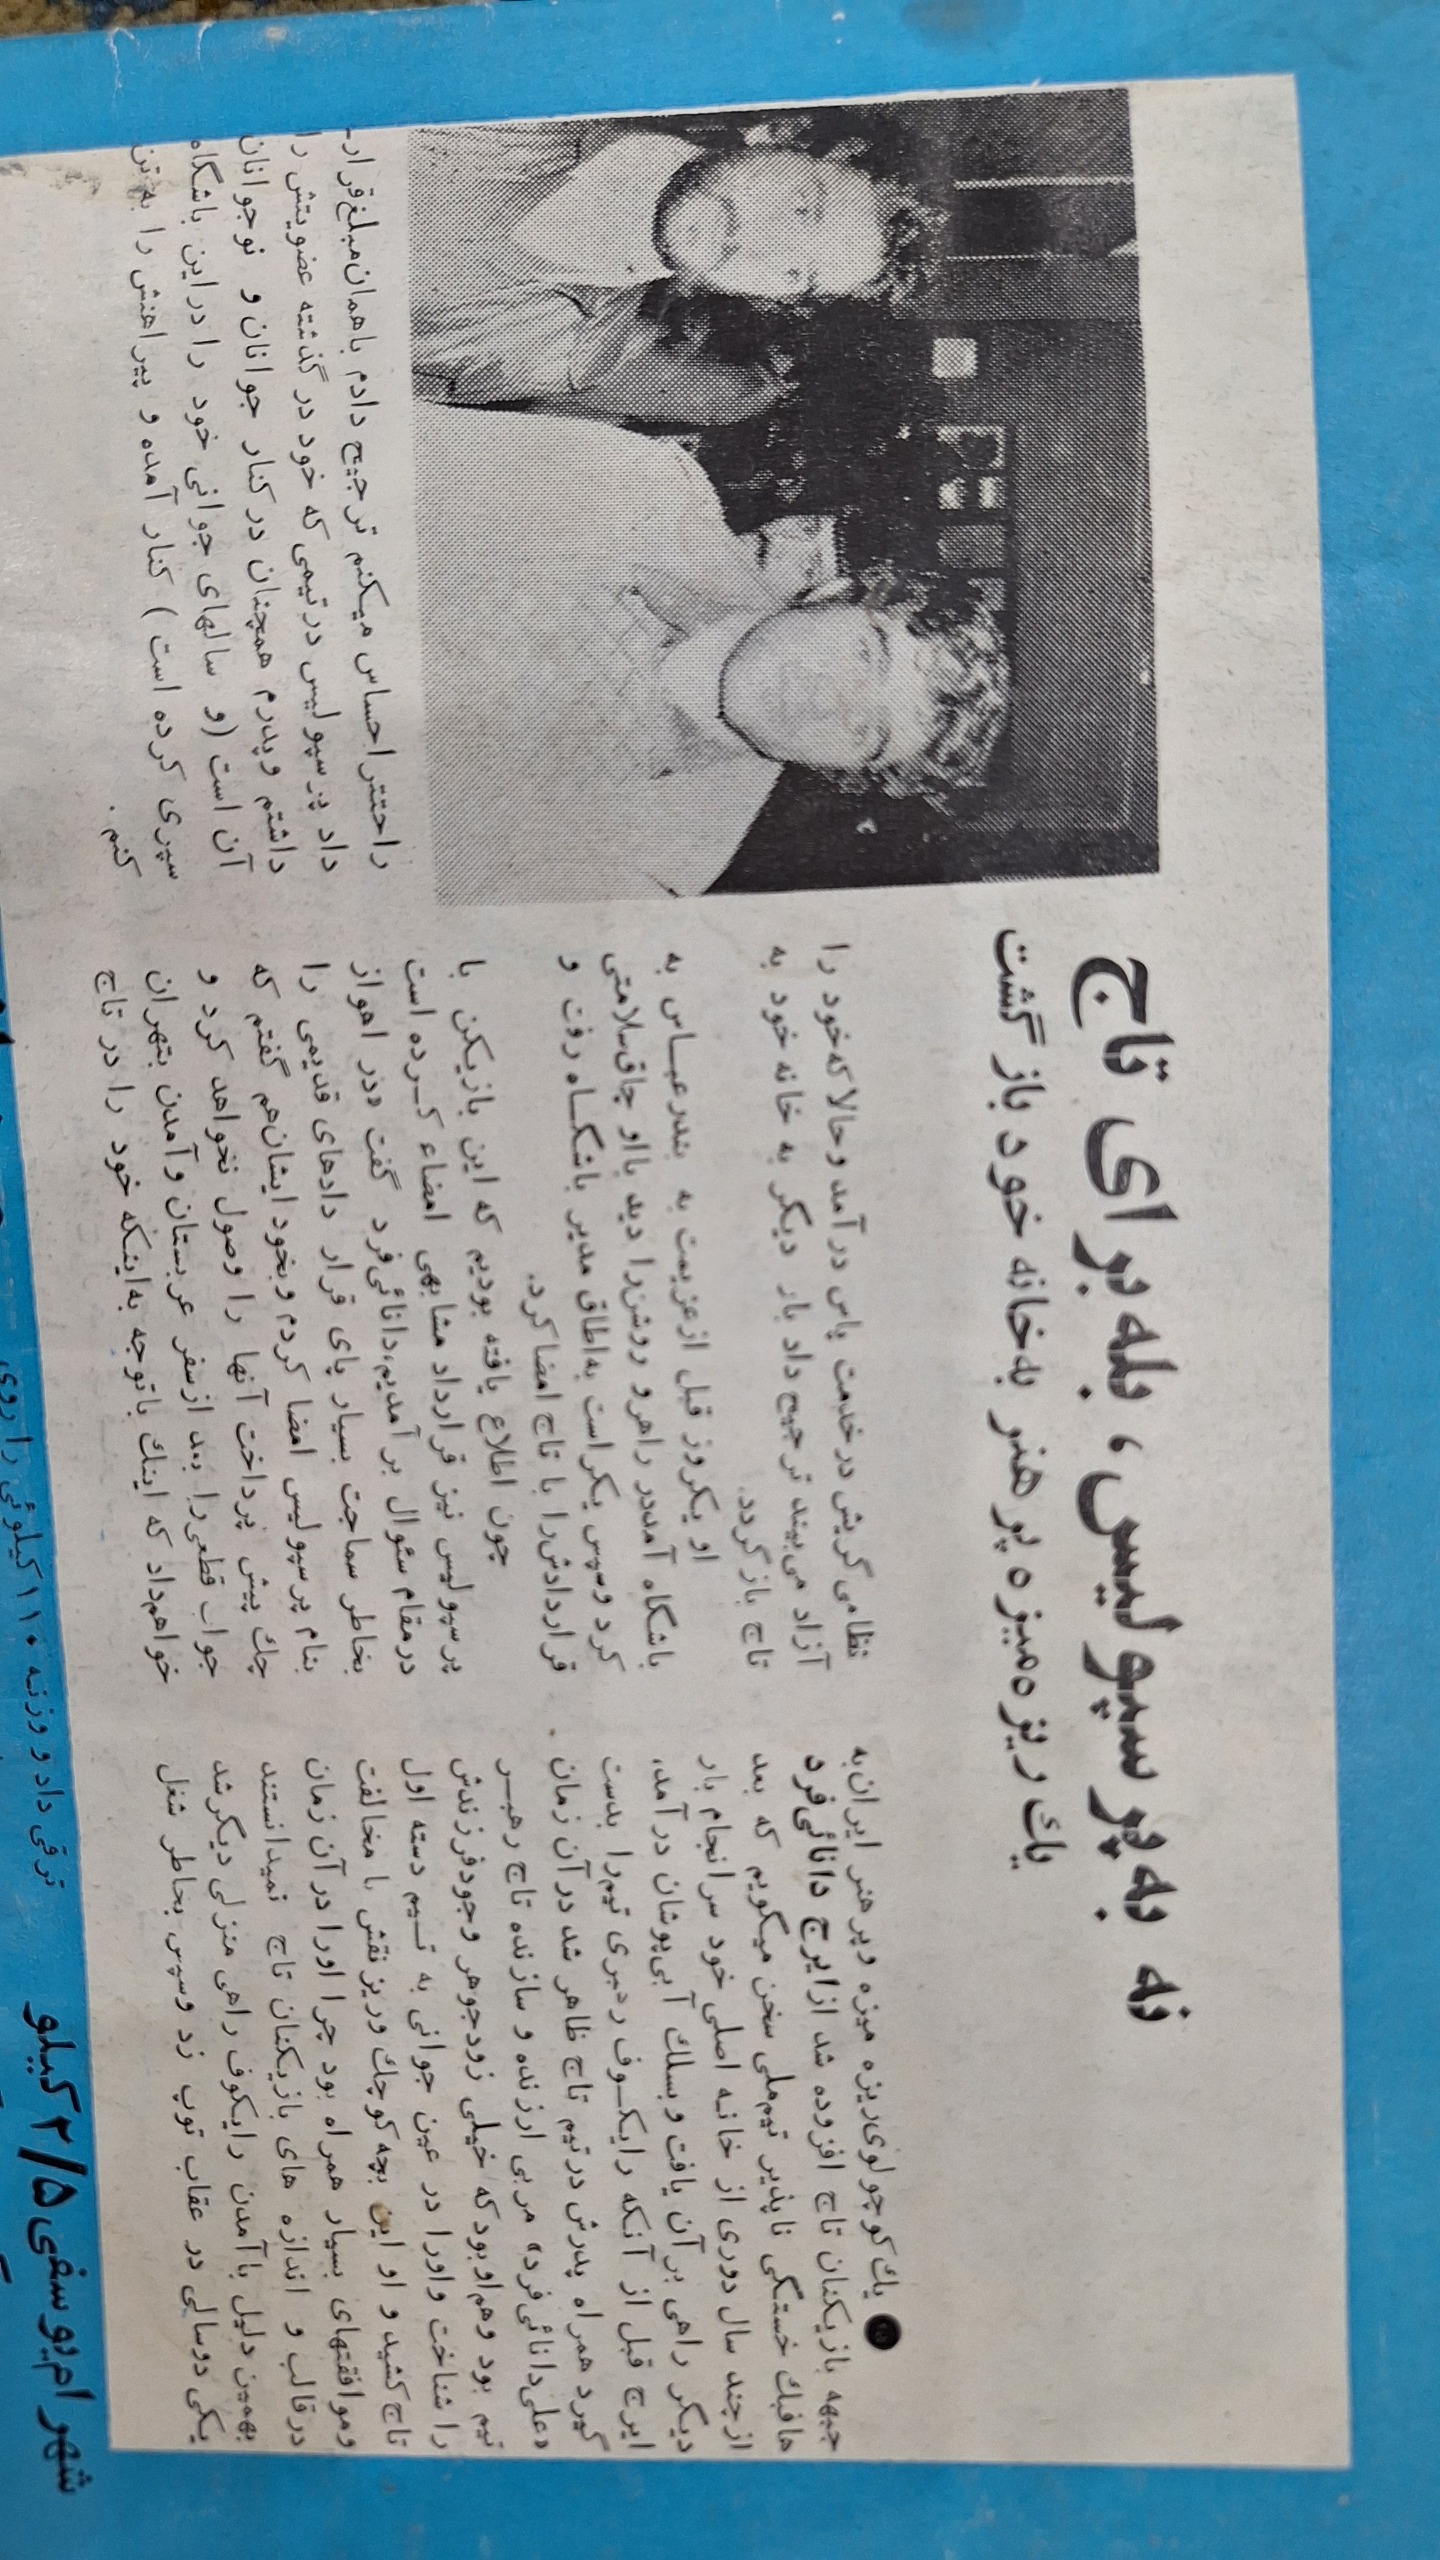 نه به پرسپولیس، بله برای تاج
یك ریزه میزه پر هنر به خانه خود بازگشت
یك کوچولوی ریزه میزه و پر هنر ایران به
جبهه بازیکنان تاج افزوده شد از ایرج دانائی‌فرد
هافبك خستگی ناپذیر تیم‌ملی سخن میگویم که بعد
از چند سال دوری از خانه اصلی خود سرانجام بار
دیگر راهی بر آن یافت و بسلك آبی‌پوشان درآمد.
ایرج قبل از آنکه رایکـوف رهبری تیم‌را بدست
گیرد همراه پدرش در تیم تاج ظاهر شد در آن زمان
«علی‌دانائی‌فرد» مربی ارزنده و سازنده تاج رهبـر
تیم بود وهم‌او بود که خیلی زود جوهر وجود فرزندش
را شناخت و اورا در عین جوانی به تـیم دسته اول
تاج کشید و او این بچه کوچك و ریز نقش با مخالفت
وموافقتهای بسیار همراه بود چرا اورا در آن زمان
در قالب و اندازه های بازیکنان تاج نمیدانستند
بهمین دلیل با آمدن رایکوف راهی منزلی دیگر شد
یکی دوسالی در عقاب توپ زد وسپس بخاطر شغل
نظامی‌گریش در خدمت پاس درآمد و حالا که خود را
آزاد می‌بیند ترجیح داد بار دیگر به خانه خود به
تاج بازگردد.
او یکروز قبل از عزیمت به بندرعبـاس به
باشگاه آمددر راهرو روشن‌را دید بااو چاق‌سلامتی
کرد وسپس یکراست به‌اطاق مدیر باشگـاه رفت و
قراردادش‌را با تاج امضا کرد.
چون اطلاع یافته بودیم که این بازیکن با
پرسپولیس نیز قرارداد مشابهی امضاء کـرده است
درمقام سئوال بر آمدیم،دانائی‌فرد گفت «در اهواز
بخاطر سماجت بسیار پای قرار دادهای قدیمی را
بنام پرسپولیس امضا کردم وبخود ایشان‌هم گفتم که
چك پیش پرداخت آنها را وصول نخواهد کرد و
جواب قطعی‌را بعد از سفر عربستان و آمدن بتهران
خواهم‌داد که اینك باتوجه به‌اینکه خود را در تاج
راحتتر احساس میکنم ترجیح دادم با همان مبلغ قرار-
داد پرسپولیس در تیمی که خود در گذشته عضویتش را
داشتم و پدرم همچنان در کنار جوانان و نوجوانان
آن است (و سالهای جوانی خود را دراین باشگاه
سپری کرده است) کنار آمده و پیراهنش را به تن
کنم.
ترقی داد و وزنه ۱۱۰ کیلوئی را روی
شهرام‌یوسفی ۲/۵ کیلو